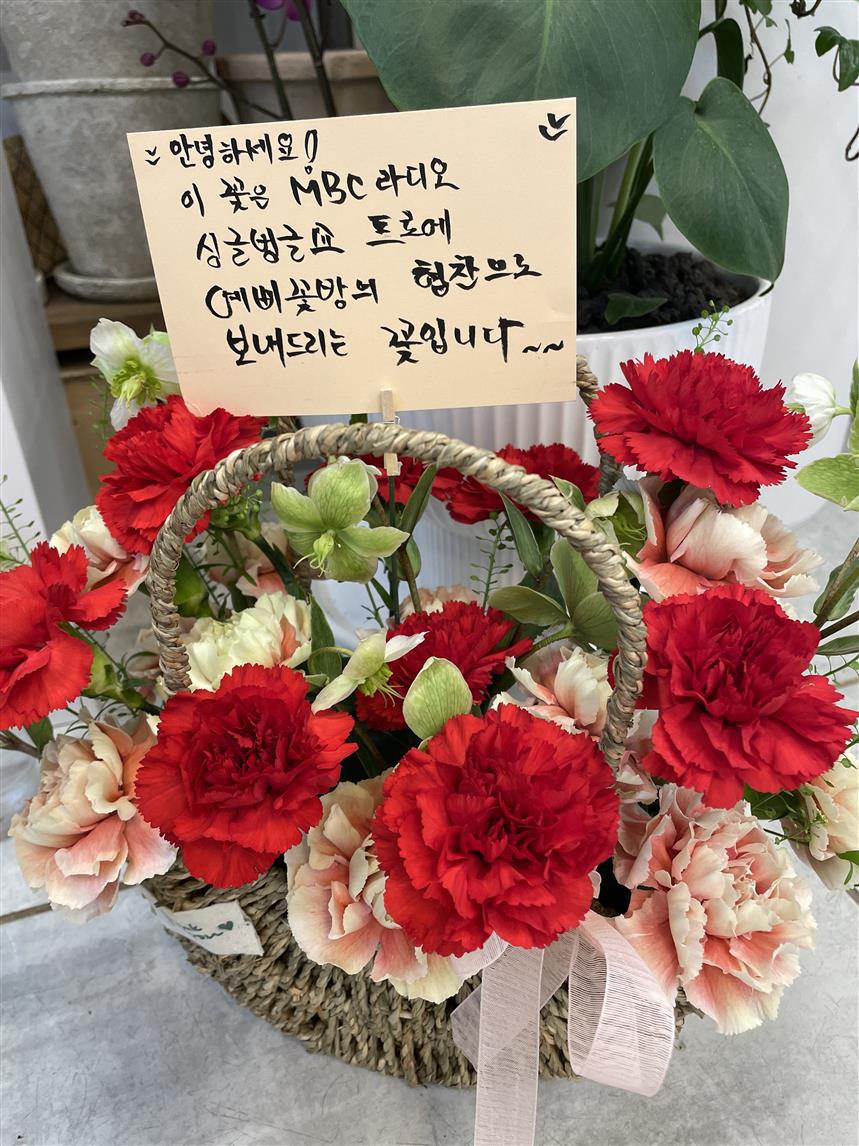 안녕하세요!
이 꽃은 MBC 라디오
싱글벙글쇼 트로에
예삐꽃방의 협찬으로
보내드리는 꽃입니다~~